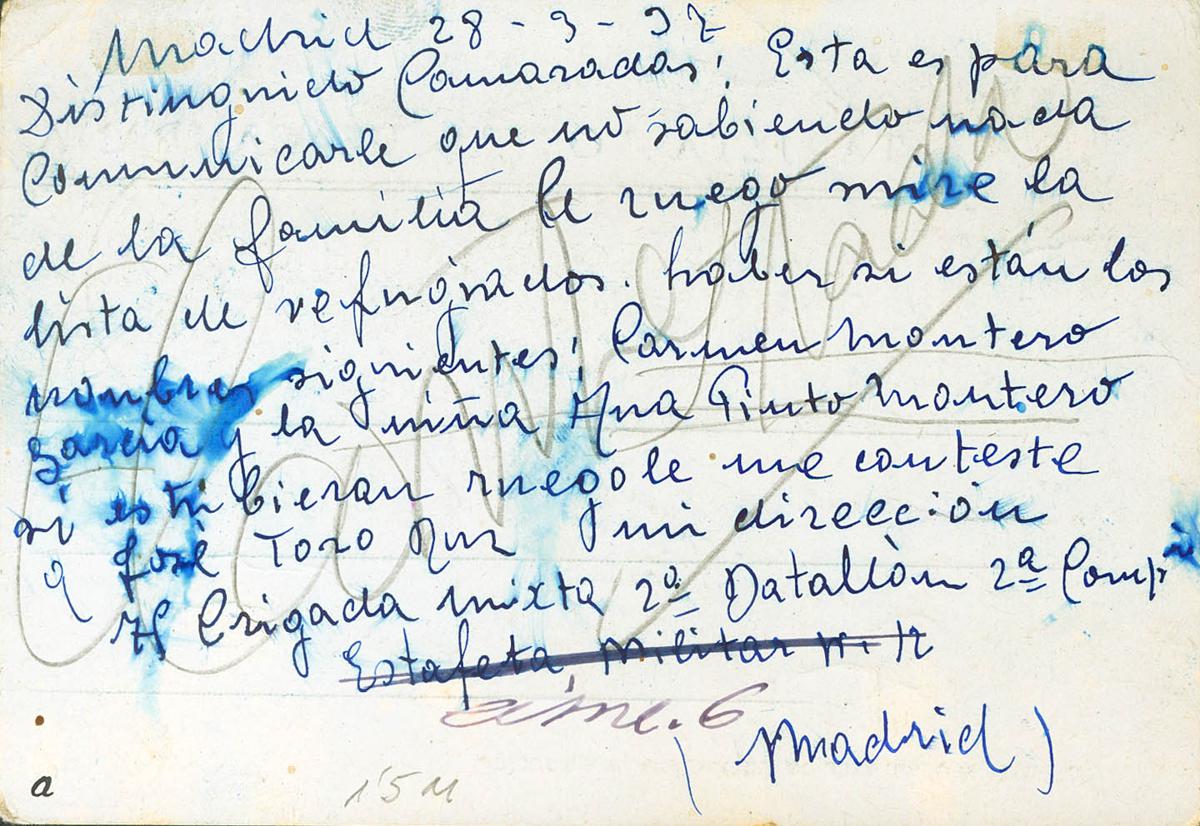 Madrid 28-3-37
Distinguido Camaradas: Esta es para
Comunicarle que nó sabiendo nada
de la familia le ruego mire la
lista de refugiados. haber si están los
nombres siguientes: Carmen Montero
Garcia y la niña Ana Pinto Montero
si estubieran ruegole me conteste
a José Toro Ruz mi dirección
Brigada mixta 2º Batallòn 2ª Compª
Estafeta Militar N. 12
6
(Madrid)
a
Contestado
15 M